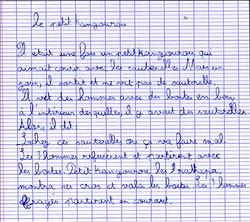 Le petit Kangourou
Il était une fois un petit Kangourou qui
aimait courir avec les sauterelles. Mais un
jour, il partit et ne vit pas de sauterelle.
Il vit des hommes avec des boites en bois,
à l'intérieur desquelles il y avait des sauterelles.
Alors, il dit:
Lachez ces sauterelles ou ça va faire mal.
Les 3 hommes refusèrent et partirent avec
les boites. Petit Kangourou les
montra ses cros et vola les boites. Les 3 hommes
partirent en courant.